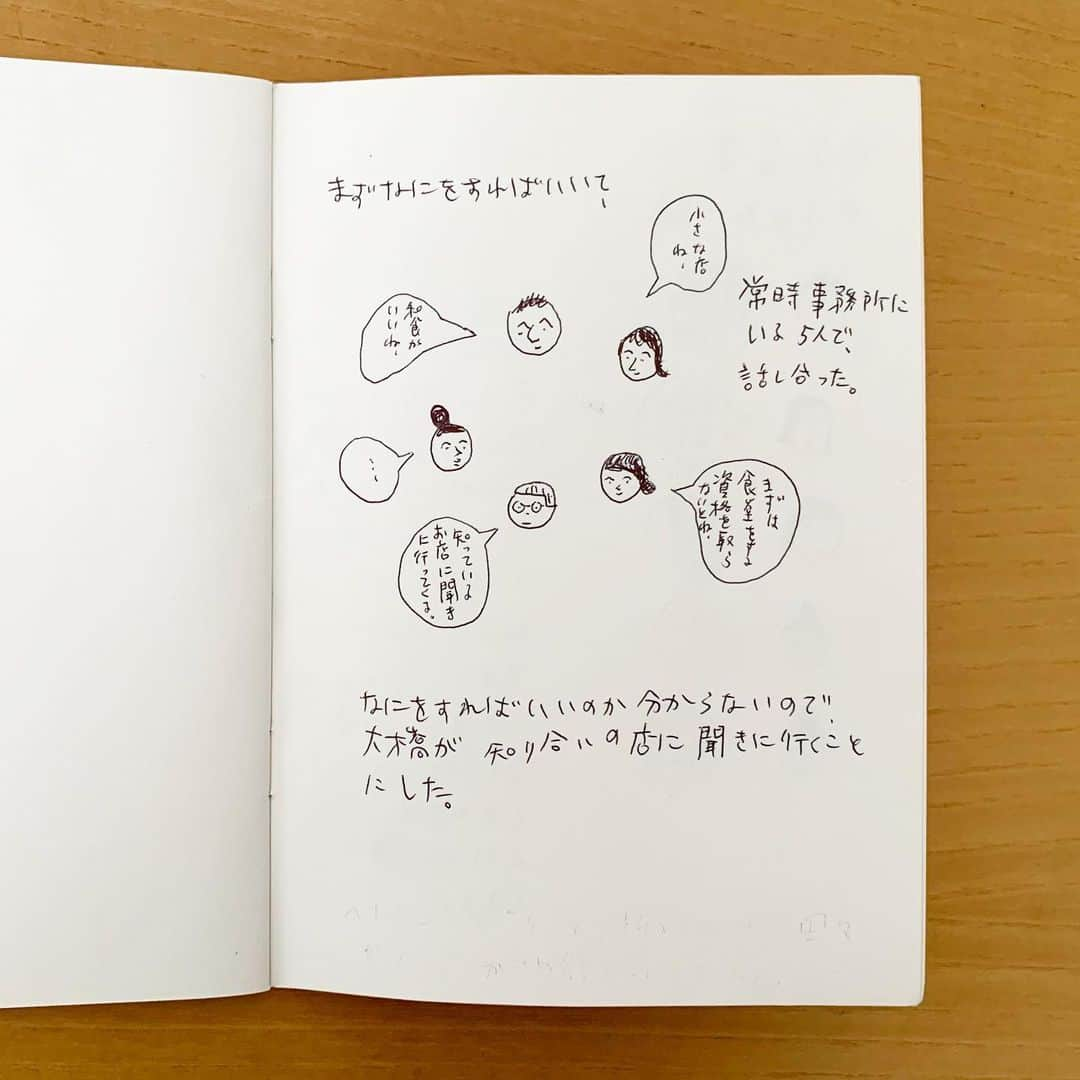 まずなにをすればいいて、
小さな店
ね、
常時事務所に
いる5人で、
話し合った。
和食が
いいね、
、、、
まずは
食堂をする
資格を取ら
ないとね、
知っている
お店に聞き
に行ってくる。
なにをすればいいのか分からないので、
大橋が知り合いの店に聞きに行くこと
にした。